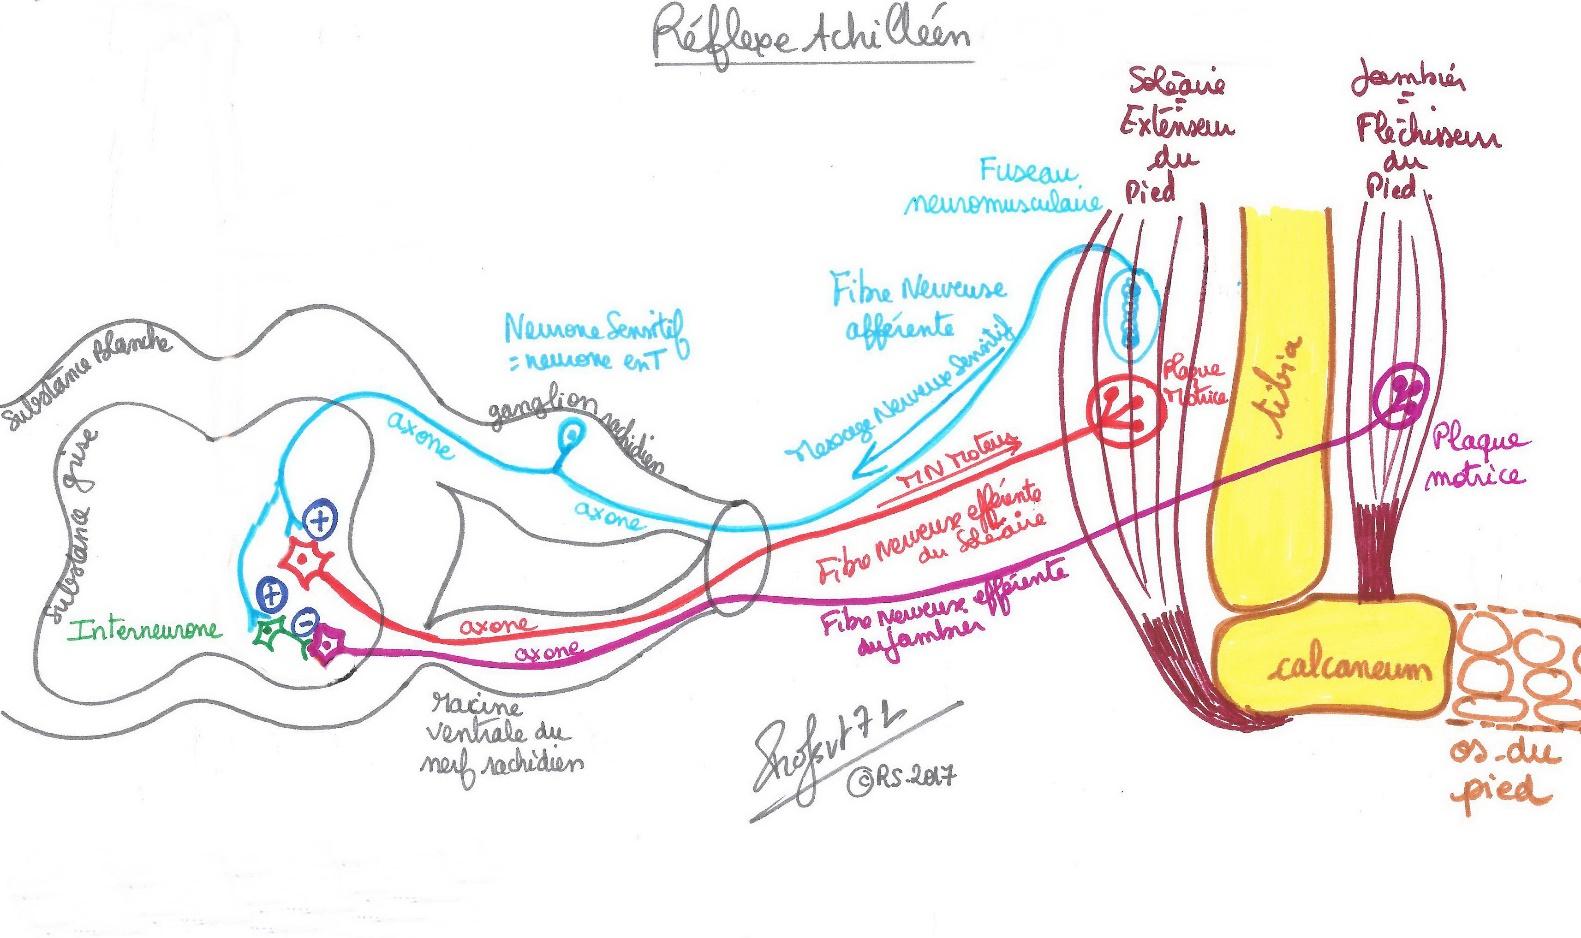 Réflexe Achilléen
Soléaire
=
Extenseur
du
Pied
Jambier
=
Fléchisseur
du
Pied
Fuseau
neuromusculaire
Fibre Nerveuse
afférente
Message Nerveux Sensitif
Neurone Sensitif
= neurone en T
ganglion rachidien
Substance Blanche
Substance grise
axone
axone
Plaque
Motrice
MN Moteur
Fibre Nerveuse efférente
du Soléaire
tibia
Plaque
motrice
+
+
-
Interneurone
axone
axone
Fibre Nerveuse efférente
du jambier
calcaneum
racine
ventrale du
nerf rachidien
Profsvt71
©RS.2017
os du
pied